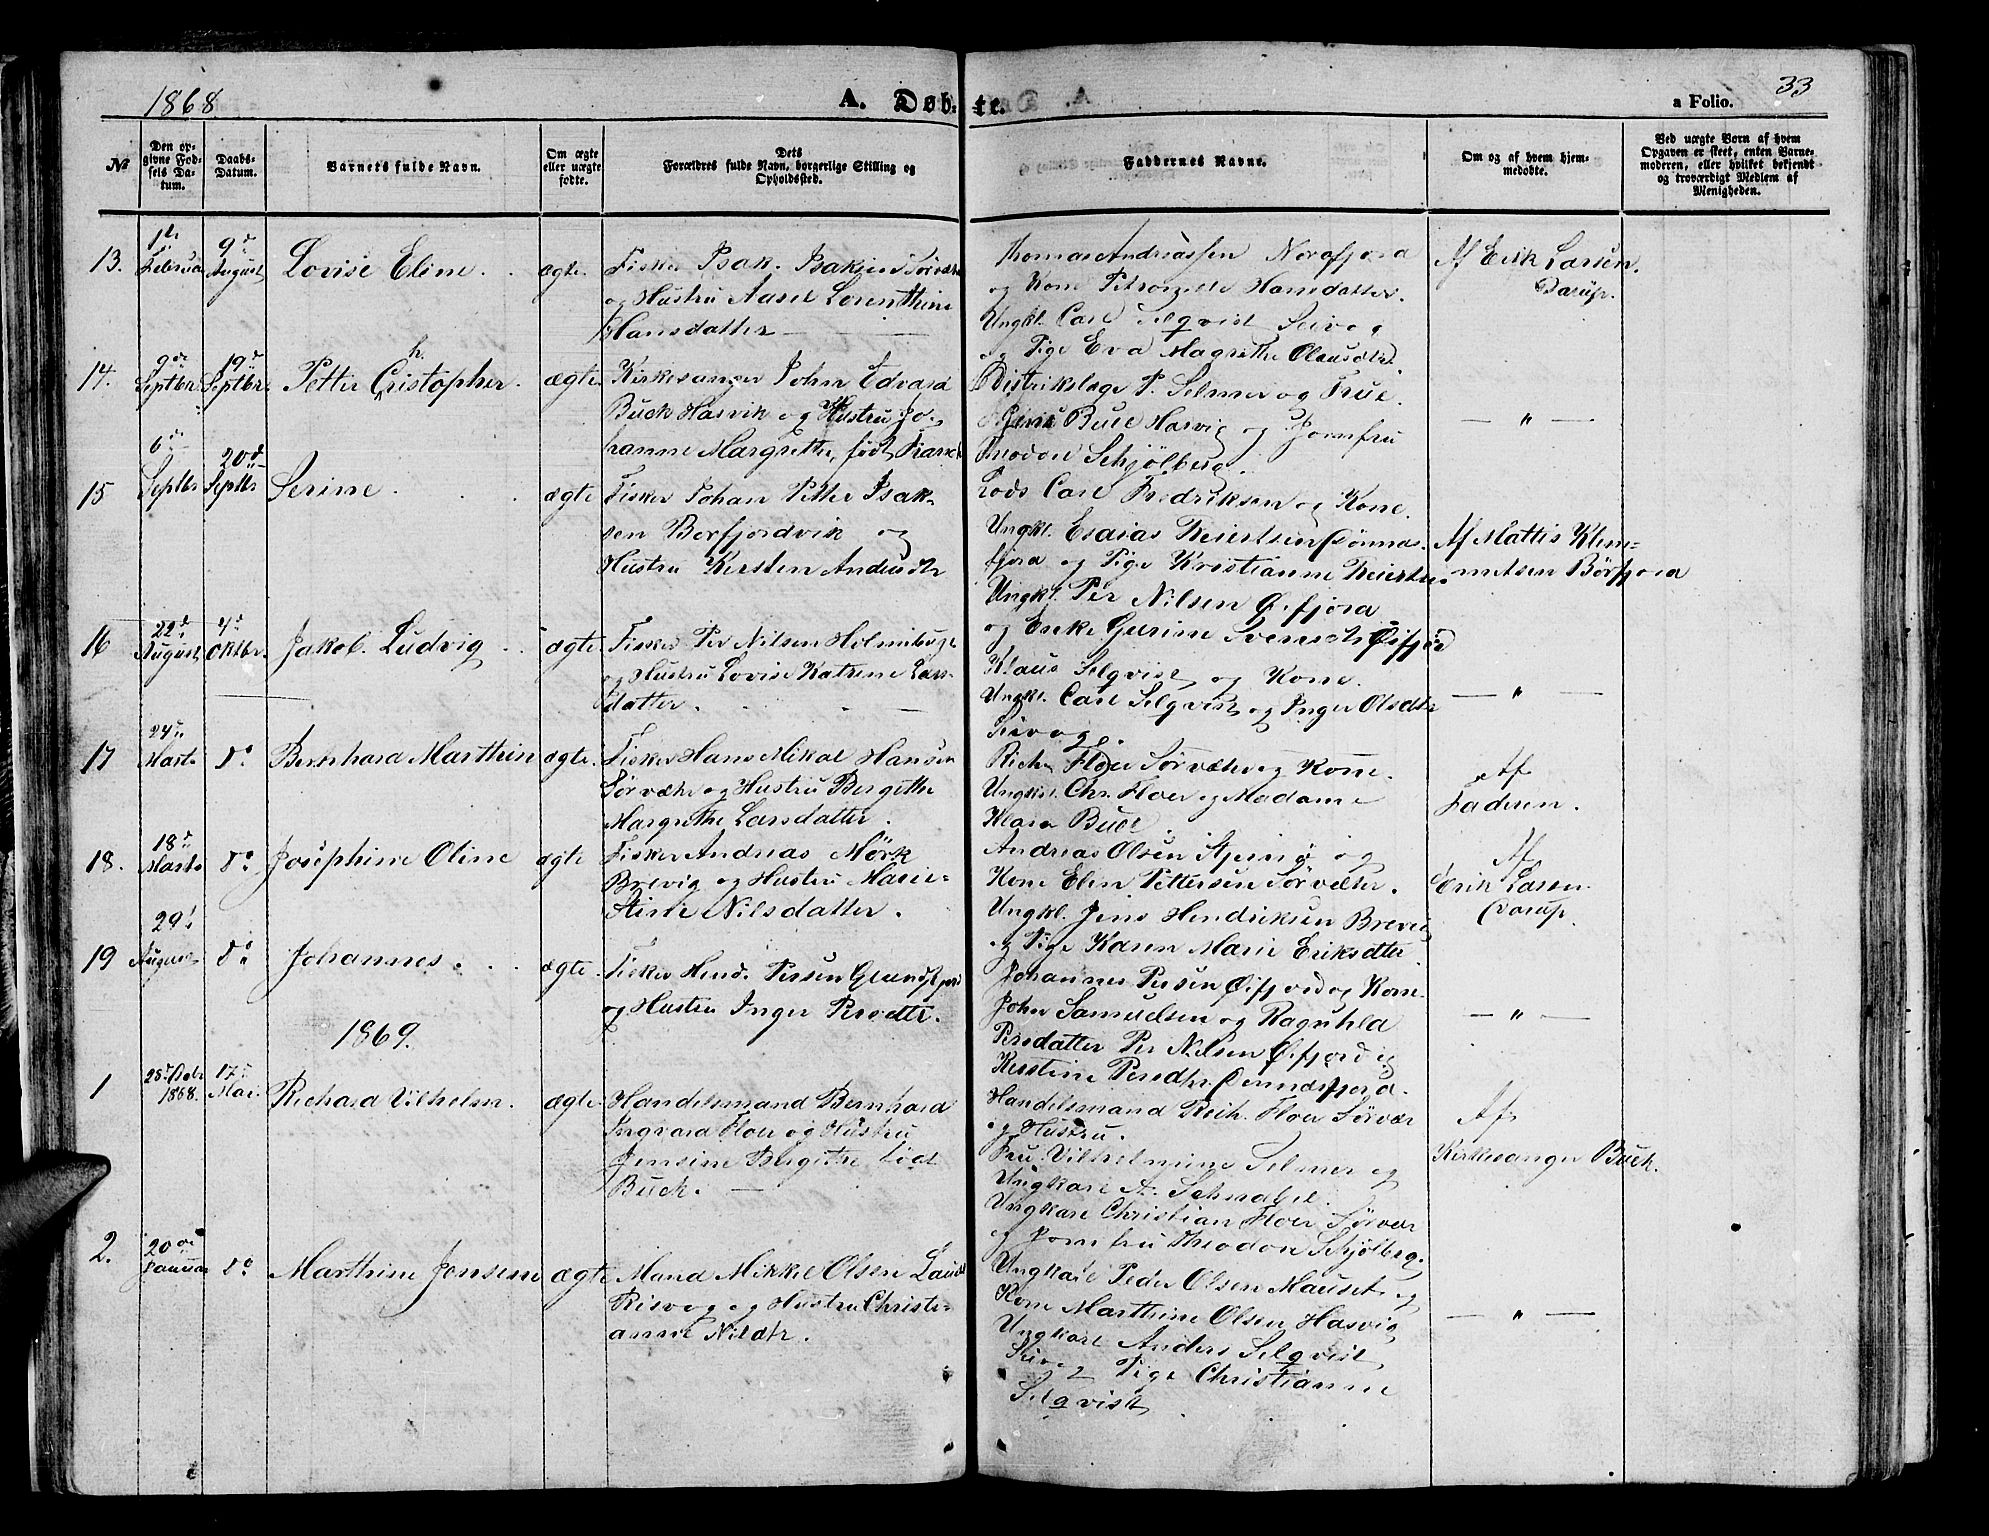 1868.
A. Døbte.
33
a Folio.
No
Den opgivne Fødsels Datum.
Daabs-Datum.
Barnets fulde Navn.
Om ægte eller uægte fødte.
Dets Forældres fulde Navn, borgerlige Stilling og Opholdssted.
Faddernes Navne.
Om og af hvem hjemmedøbte.
Ved uægte Børn af hvem Opgaven er skeet, enten Barnemoderen, eller hvilket bekjendt og troværdigt Medlem af Menigheden.
13.
1de Februar
9d August
Lovise Eline.
ægte.
Fisker Isak Isaksen Sørvær
og Hustru Aasel Lorenthine
Hansdatter
Thomas Andreassen Norafjora
og Kone Petronelle Hansdatter.
Ungkl. Carl Selqvist Seivog
og Pige Eva Magrethe Olausdtr.
Af Erik Larsen
Darup.
14.
9de Septbr.
19d Septbr
Petter Christopher.
ægte.
Kirkesanger John Edvard
Buck Hasvik og Hustru Jo-
hanne Margrethe, født
Distrikslæge P. Selmer og Frue.
Buck Hasvig og Jomfru
Theodon Schjølberg.
— " —
15
6d Septbr
20d Septbr
Serine.
ægte
Fisker Johan Petter Isak-
sen Børfjordvik og
Hustru Kirsten Andersdtr
Lods Carl Fredriksen og Kone.
Ungkl. Esaias Reiertsen Sønnas-
fjora og Pige Kristianne Reierts
Af Mattis Klem-
metsen Børfjora
16
22d August
4d Oktbr.
Jakob Ludvig
ægte.
Fisker Per Nilsen Holmibugt
og Hustru Lovise Katrine Lars-
datter.
Ungkl. Per Nilsen Øifjora
og Enke Gurine Svensdtr Øifjord
Klaus Selqvist og Kone.
Ungkl. Carl Selqvist og Inger Olsdtr
Seivog.
— " —
17
24d Marts
do
Bernhard Marthin
ægte.
Fisker Hans Mikal Hansen
Sørvær og Hustru Bergithe
Margrethe Larsdatter.
Rich. Floer Sørvær og Kone.
Ungkl. Chr. Floer og Madame
Klara Buck.
Af
Faderen.
18.
18d Marts
do
Josephine Oline
ægte
Fisker Andreas Mörk
Brevig og Hustru Marie-
Stine Nilsdatter.
Andreas Olsen Stjernø og
Kone Elen Pettersen Sørvær.
Ungkl. Jens Hendriksen Brevig
og Pige Karen Marie Eriksdtr.
Af
Erik Larsen
Darup.
19
29d August
do
Johannes.
ægte.
Fisker Hend. Persen
og Hustru Inger Persdtr.
Johannes Persen Øifjord og Kone
John Samuelsen og Ragnhild
Persdatter Per Nilsen Øifjord og
Kirstine Persdtr.
— " —
1869.
1
1868.
17d Mai.
Richard Vilhelm.
ægte.
Handelsmand Bernhard
Ingvard Floer og Hustru
Jensine Birgithe født
Buck.
Handelsmand Rich. Floer Sørvær
og Hustru.
Fru Vilhelmine Selmer og
Ungkarl A. Schnabel.
Ungkarl Christian Floer Sørvær
og Jomfru Theodon Schjølberg.
Af
Kirkesanger Buck.
2.
20de Januar
do
Marthine Jensine
ægte
Mand Mikkel Olsen
Risvog og Hustru Christi-
anne Nilsdtr.
Ungkarl Peder Olsen Mauset og
Kone Marthine Olsen Hasvig
Ungkarl Anders Selqvist
Seivog Pige Christianne
Selqvist
— " —